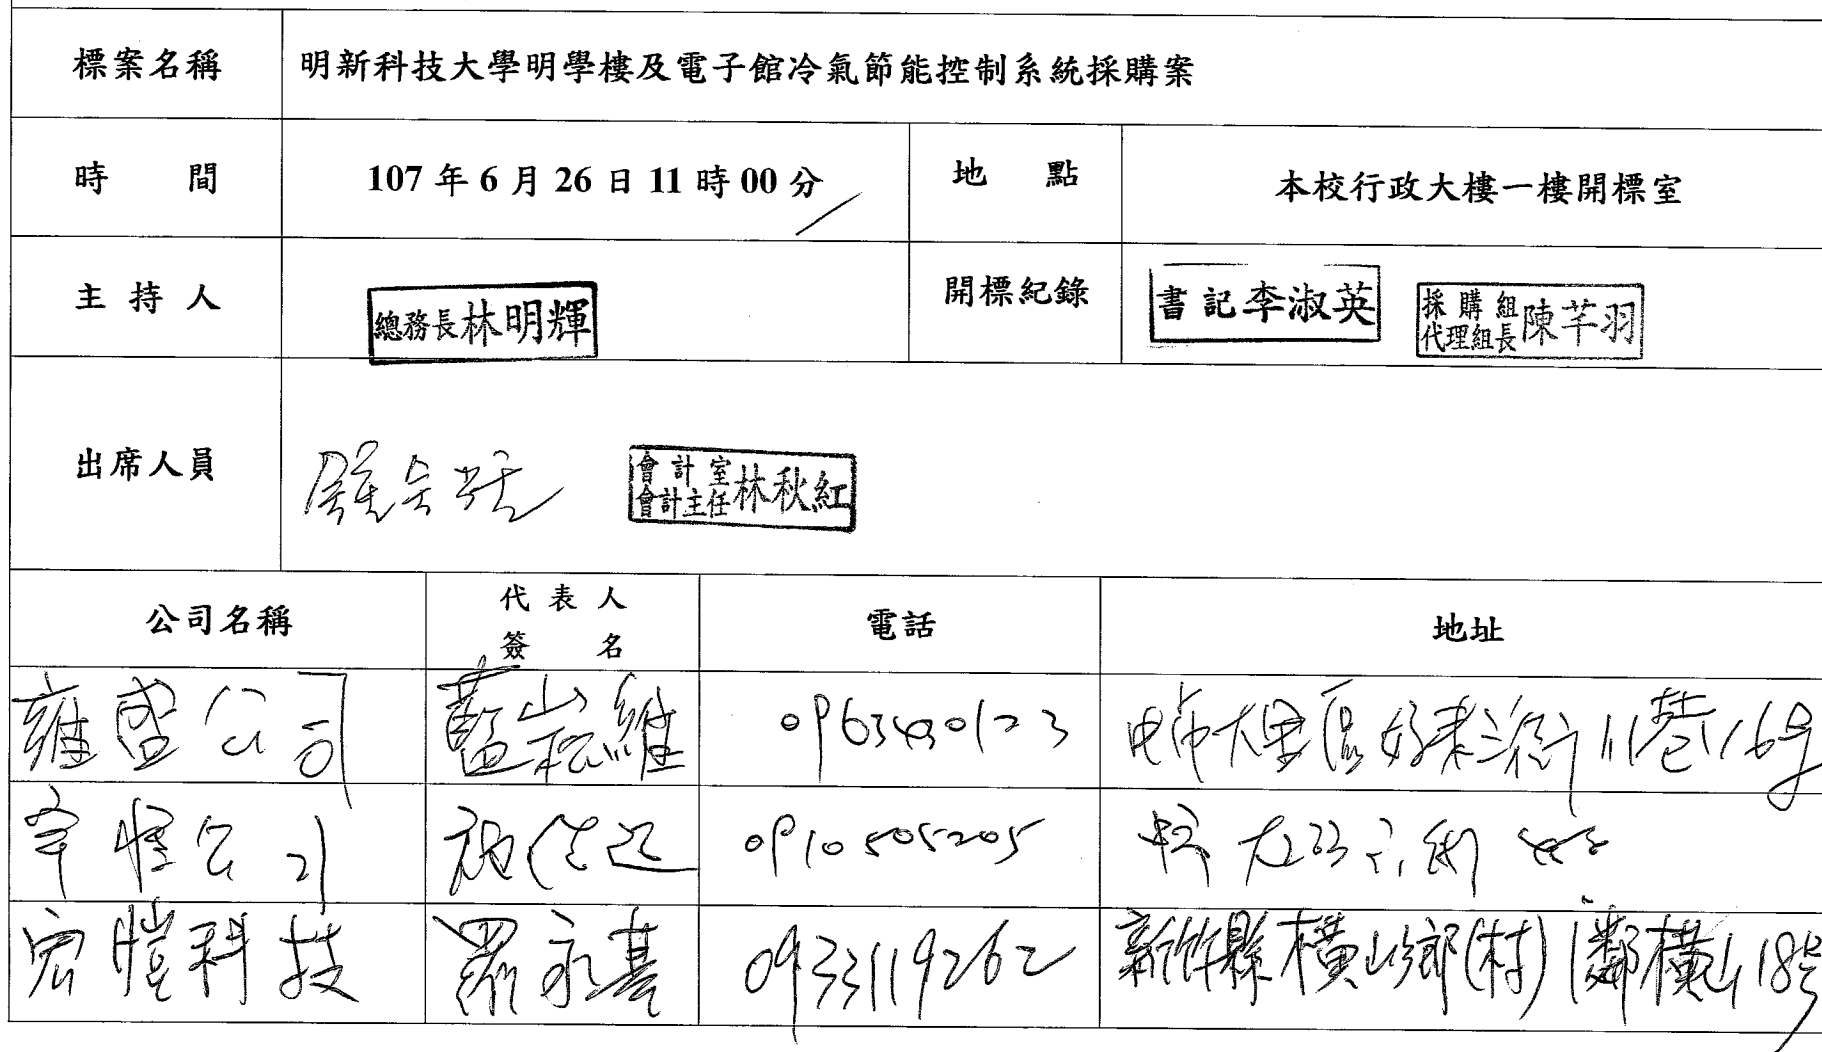 標案名稱 明新科技大學明學樓及電子館冷氣節能控制系統採購案
時間 107 年 6 月 26 日 11 時 00 分 地點 本校行政大樓一樓開標室
主持人 總務長林明輝 開標紀錄 書記李淑英 採購組代理組長陳芊羽
出席人員 會計室會計主任林秋紅
公司名稱 代表人簽名 電話 地址
雍盛公司 藍崧維 0963430123 市大里區好來街11巷16号
公司 0910505205
宏愷科技 羅永基 0933119262 新竹縣橫山鄉(村)1鄰橫山18号